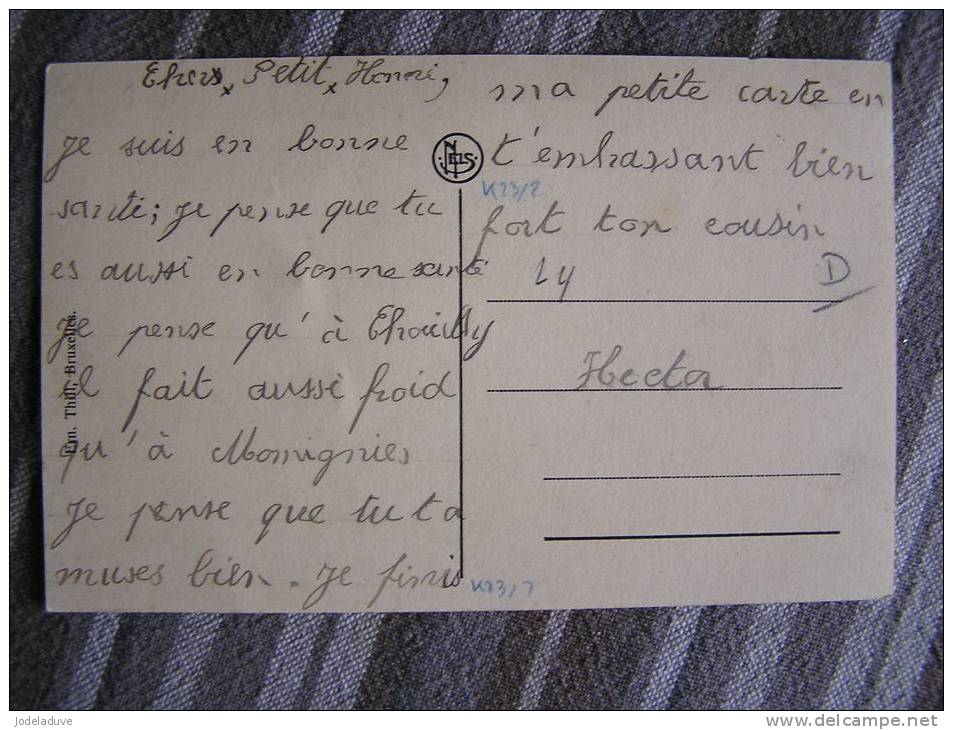 Chers Petit Henri,
Je suis en bonne
santé; je pense que tu
es aussi en bonne santé
Je pense qu'à Thouilly
il fait aussi froid
qu'à Momignies
Je pense que tu t a
muses bien. Je finis
ma petite carte en
t'embrassant bien
fort ton cousin
Ly
D
Hector
NELS
K23/2
K23/7
Em. Thill, Bruxelles.
Jodeladuve
www.delcampe.net